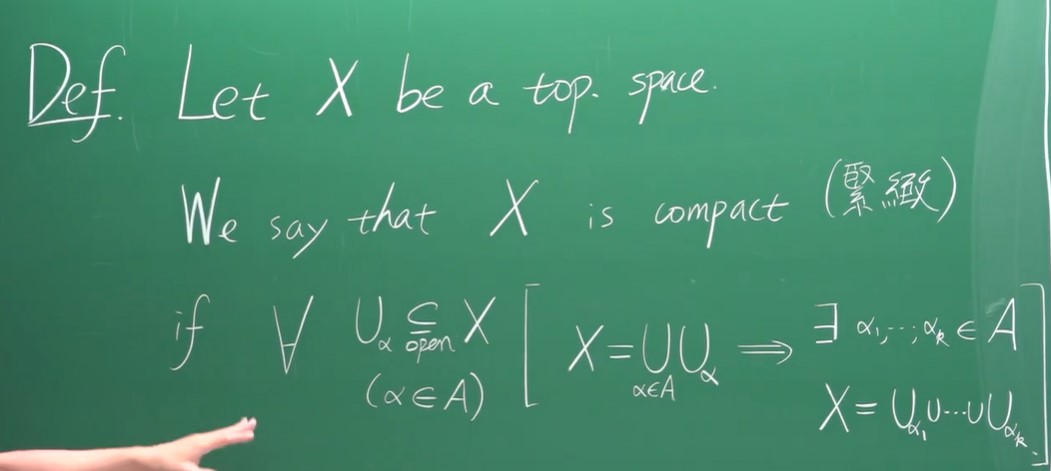 Def. Let X be a top. space.
We say that X is compact (緊緻)
if ∀ U_α ⊆_open X (α∈A) [ X = ⋃_{α∈A} U_α ⟹ ∃ α₁, ⋯, α_k ∈ A
X = U_{α₁} ∪ ⋯ ∪ U_{α_k}. ]